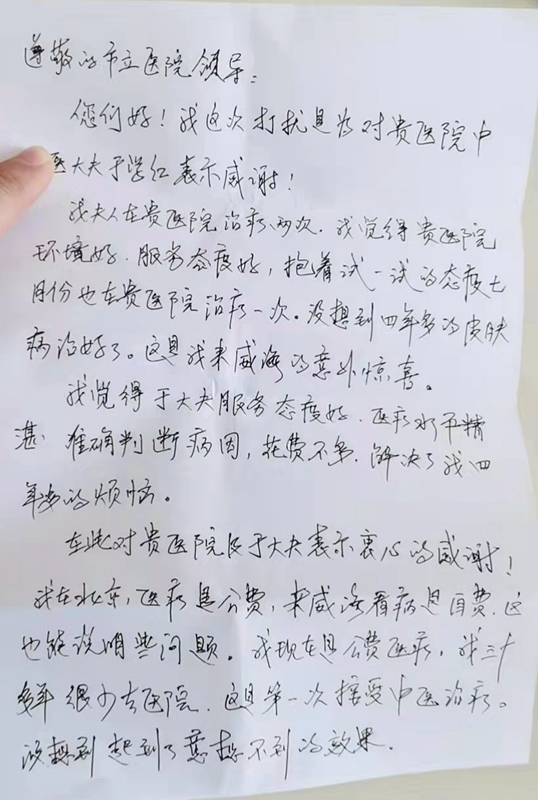 尊敬的市立医院领导:
您们好!我这次打扰是为对贵医院中
医大夫于学红表示感谢!
我夫人在贵医院治疗两次.我觉得贵医院
环境好.服务态度好,抱着试一试的态度七
月份也在贵医院治疗一次。没想到四年多的皮肤
病治好了。这是我来威海的意外惊喜。
我觉得于大夫服务态度好.医疗水平精
湛.准确判断病因,花费不多.解决了我四
年多的烦恼。
在此对贵医院及于大夫表示衷心的感谢!
我在北京,医疗是公费,来威海看病是自费.这
也能说明些问题。我现在是公费医疗,我三十
多年很少去医院.这是第一次接受中医治疗。
没想到起到了意想不到的效果.